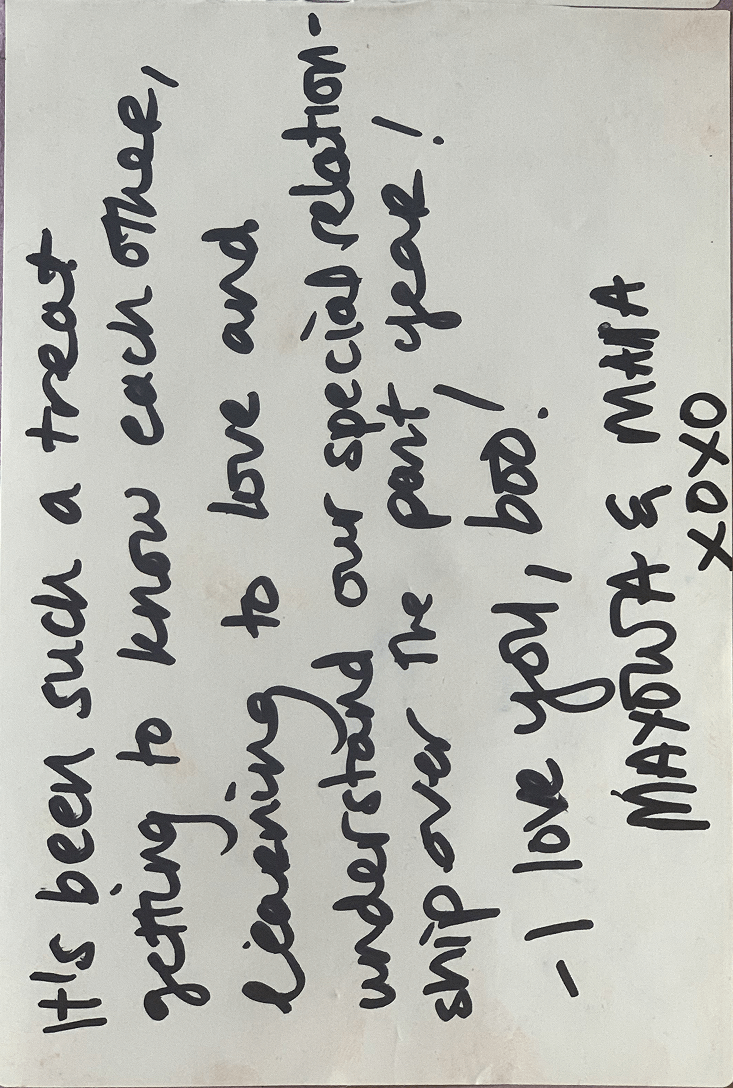 It's been such a treat
getting to know each other,
learning to love and
understand our special relation-
ship over the past year!
- I love you, boo!
MAXOWTA & MAMA
XOXO